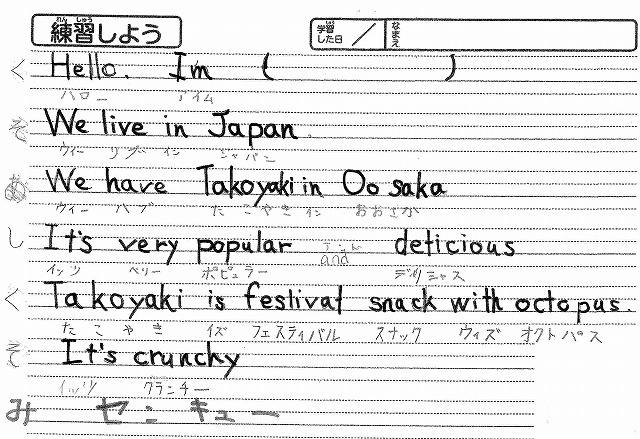 練習しよう 学習した日 / なまえ
く Hello. I'm ( )
ハロー アイム
そ We live in Japan
ウィー リブ イン ジャパン
We have Takoyaki in Oosaka
ウィー ハブ たこやき イン おおさか
し It's very popular and deticious
イッツ ベリー ポピュラー デリシャス
く Takoyaki is festivat snack with octopus.
たこやき イズ フェスティバル スナック ウィズ オクトパス
そ It's crunchy
イッツ クランチー
み センキュー